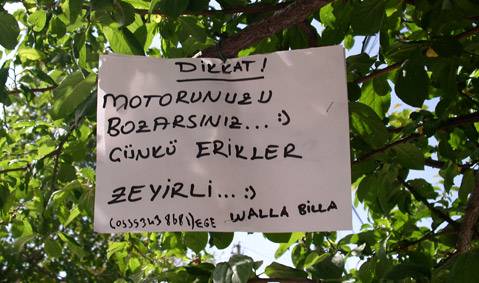 DİKKAT!
MOTORUNUZU
BOZARSINIZ... :)
ÇÜNKÜ ERİKLER
ZEYİRLİ... :)
EGE WALLA BİLLA